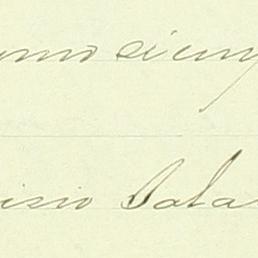 omo siemp
isio Sala